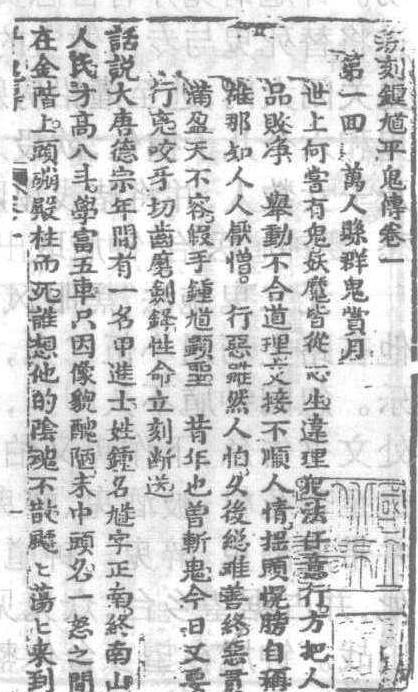 刻鍾馗平鬼傳卷一
第一回 萬人縣群鬼賞月
世上何嘗有鬼妖魔皆從心生違理犯法任意行方把人
品敗淨 舉動不合道理交接不順人情搖頭愰膀自稱
雄那知人人厭憎。行惡雖然人怕久後總難善終惡貫
滿盈天不容假手鍾馗顯聖 昔年也曾斬鬼今日又要
行兇咬牙切齒磨劍鋒性命立刻斷送
話說大唐德宗年間有一名甲進士姓鍾名馗字正南終南山
人氏才高八斗學富五車只因像貌醜陋未中頭名一怒之間
在金階上頭碰殿柱而死誰想他的陰魂不散飄〻蕩〻來到